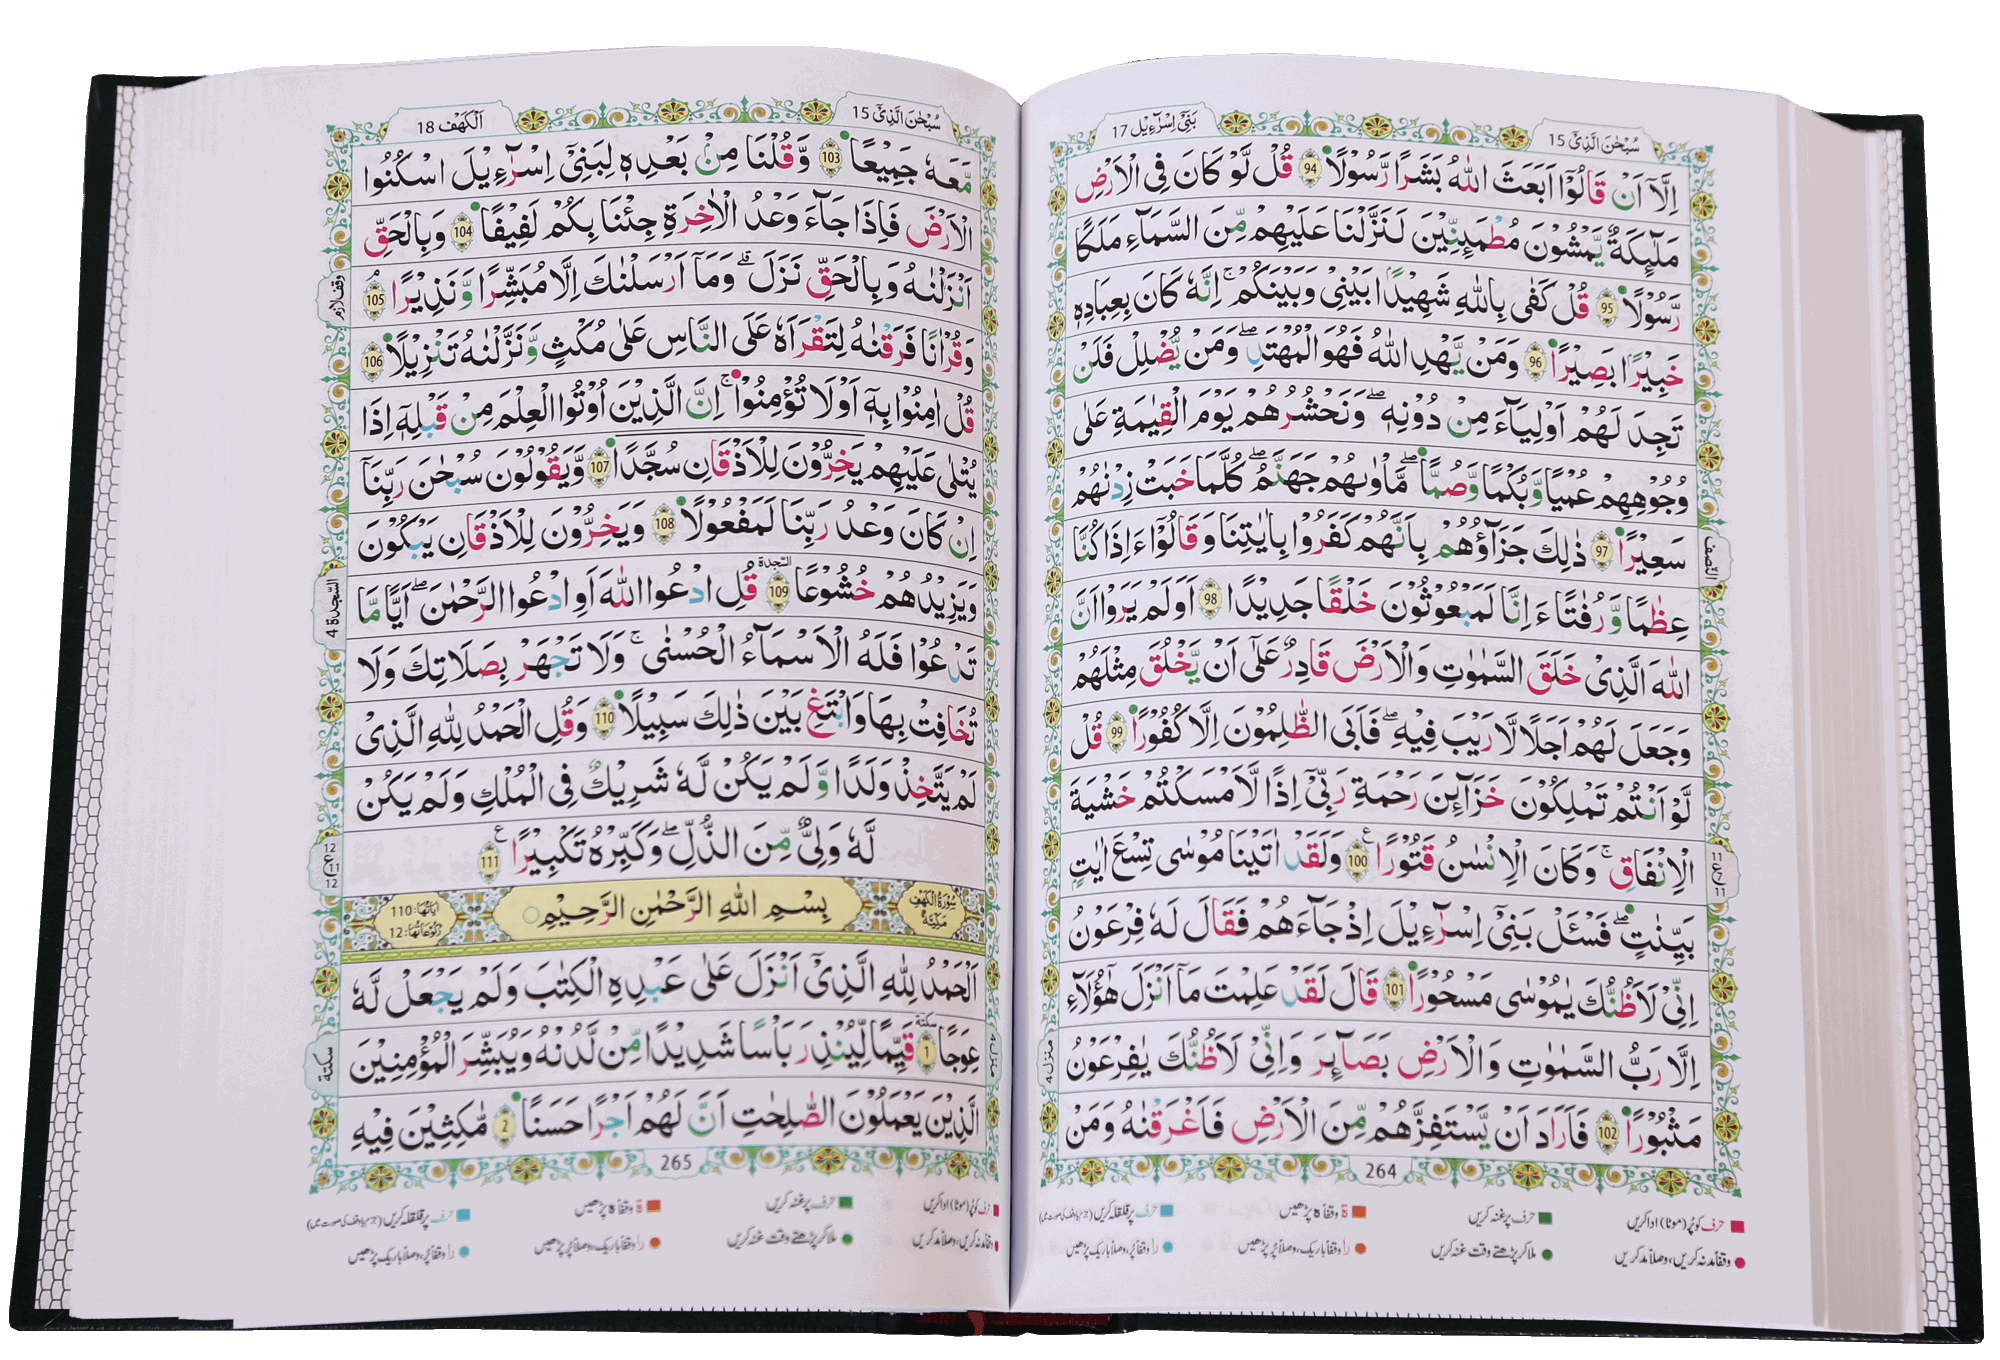 بَنِیْۤ اِسْرَآءِیْل 17
سُبْحٰنَ الَّذِیْۤ 15
اِلَّاۤ اَنْ قَالُوْۤا اَبَعَثَ اللّٰهُ بَشَرًا رَّسُوْلًا 94 قُلْ لَّوْ كَانَ فِی الْاَرْضِ
مَلٰٓئِكَةٌ یَّمْشُوْنَ مُطْمَئِنِّیْنَ لَنَزَّلْنَا عَلَیْهِمْ مِّنَ السَّمَآءِ مَلَكًا
رَّسُوْلًا 95 قُلْ كَفٰی بِاللّٰهِ شَهِیْدًۢا بَیْنِیْ وَبَیْنَكُمْ ؕ اِنَّهٗ كَانَ بِعِبَادِهٖ
خَبِیْرًۢا بَصِیْرًا 96 وَمَنْ یَّهْدِ اللّٰهُ فَهُوَ الْمُهْتَدِ ۚ وَمَنْ یُّضْلِلْ فَلَنْ
تَجِدَ لَهُمْ اَوْلِیَآءَ مِنْ دُوْنِهٖ ؕ وَنَحْشُرُهُمْ یَوْمَ الْقِیٰمَةِ عَلٰی
وُجُوْهِهِمْ عُمْیًا وَّبُكْمًا وَّصُمًّا ؕ مَاْوٰىهُمْ جَهَنَّمُ ؕ كُلَّمَا خَبَتْ زِدْنٰهُمْ
سَعِیْرًا 97 ذٰلِكَ جَزَآؤُهُمْ بِاَنَّهُمْ كَفَرُوْا بِاٰیٰتِنَا وَقَالُوْۤا ءَاِذَا كُنَّا
عِظٰمًا وَّرُفَاتًا ءَاِنَّا لَمَبْعُوْثُوْنَ خَلْقًا جَدِیْدًا 98 اَوَلَمْ یَرَوْا اَنَّ
اللّٰهَ الَّذِیْ خَلَقَ السَّمٰوٰتِ وَالْاَرْضَ قَادِرٌ عَلٰۤی اَنْ یَّخْلُقَ مِثْلَهُمْ
وَجَعَلَ لَهُمْ اَجَلًا لَّا رَیْبَ فِیْهِ ؕ فَاَبَی الظّٰلِمُوْنَ اِلَّا كُفُوْرًا 99 قُلْ
لَّوْ اَنْتُمْ تَمْلِكُوْنَ خَزَآئِنَ رَحْمَةِ رَبِّیْۤ اِذًا لَّاَمْسَكْتُمْ خَشْیَةَ
الْاِنْفَاقِ ؕ وَكَانَ الْاِنْسٰنُ قَتُوْرًا 100 وَلَقَدْ اٰتَیْنَا مُوْسٰی تِسْعَ اٰیٰتٍۭ
بَیِّنٰتٍ فَسْـَٔلْ بَنِیْۤ اِسْرَآءِیْلَ اِذْ جَآءَهُمْ فَقَالَ لَهٗ فِرْعَوْنُ
اِنِّیْ لَاَظُنُّكَ یٰمُوْسٰی مَسْحُوْرًا 101 قَالَ لَقَدْ عَلِمْتَ مَاۤ اَنْزَلَ هٰۤؤُلَآءِ
اِلَّا رَبُّ السَّمٰوٰتِ وَالْاَرْضِ بَصَآئِرَ ۚ وَاِنِّیْ لَاَظُنُّكَ یٰفِرْعَوْنُ
مَثْبُوْرًا 102 فَاَرَادَ اَنْ یَّسْتَفِزَّهُمْ مِّنَ الْاَرْضِ فَاَغْرَقْنٰهُ وَمَنْ
النّصف
ع 11
11
منزل 4
264
حرف کو پُر (موٹا) ادا کریں
حرف پر غنہ کریں
ۃ وقفاً ہ پڑھیں
حرف پر قلقلہ کریں
وقفاً مد نہ کریں، وصلاً مد کریں
ملا کر پڑھتے وقت غنہ کریں
را وقفاً باریک، وصلاً پُر پڑھیں
را وقفاً پُر، وصلاً باریک پڑھیں
اَلْكَهْف 18
سُبْحٰنَ الَّذِیْۤ 15
مَّعَهٗ جَمِیْعًا 103 وَّقُلْنَا مِنْۢ بَعْدِهٖ لِبَنِیْۤ اِسْرَآءِیْلَ اسْكُنُوا
الْاَرْضَ فَاِذَا جَآءَ وَعْدُ الْاٰخِرَةِ جِئْنَا بِكُمْ لَفِیْفًا 104 وَبِالْحَقِّ
اَنْزَلْنٰهُ وَبِالْحَقِّ نَزَلَ ؕ وَمَاۤ اَرْسَلْنٰكَ اِلَّا مُبَشِّرًا وَّنَذِیْرًا 105
وَقُرْاٰنًا فَرَقْنٰهُ لِتَقْرَاَهٗ عَلَی النَّاسِ عَلٰی مُكْثٍ وَّنَزَّلْنٰهُ تَنْزِیْلًا 106
قُلْ اٰمِنُوْا بِهٖۤ اَوْ لَا تُؤْمِنُوْا ؕ اِنَّ الَّذِیْنَ اُوْتُوا الْعِلْمَ مِنْ قَبْلِهٖۤ اِذَا
یُتْلٰی عَلَیْهِمْ یَخِرُّوْنَ لِلْاَذْقَانِ سُجَّدًا 107 وَّیَقُوْلُوْنَ سُبْحٰنَ رَبِّنَاۤ
اِنْ كَانَ وَعْدُ رَبِّنَا لَمَفْعُوْلًا 108 وَیَخِرُّوْنَ لِلْاَذْقَانِ یَبْكُوْنَ
وَیَزِیْدُهُمْ خُشُوْعًا 109 السّجدة قُلِ ادْعُوا اللّٰهَ اَوِ ادْعُوا الرَّحْمٰنَ ؕ اَیًّا مَّا
تَدْعُوْا فَلَهُ الْاَسْمَآءُ الْحُسْنٰی ۚ وَلَا تَجْهَرْ بِصَلَاتِكَ وَلَا
تُخَافِتْ بِهَا وَابْتَغِ بَیْنَ ذٰلِكَ سَبِیْلًا 110 وَقُلِ الْحَمْدُ لِلّٰهِ الَّذِیْ
لَمْ یَتَّخِذْ وَلَدًا وَّلَمْ یَكُنْ لَّهٗ شَرِیْكٌ فِی الْمُلْكِ وَلَمْ یَكُنْ
لَّهٗ وَلِیٌّ مِّنَ الذُّلِّ وَكَبِّرْهُ تَكْبِیْرًا 111
سُوْرَةُ الْكَهْفِ مَكِّیَّةٌ
بِسْمِ اللّٰهِ الرَّحْمٰنِ الرَّحِیْمِ
اٰیَاتُهَا: 110
رُكُوْعَاتُهَا: 12
اَلْحَمْدُ لِلّٰهِ الَّذِیْۤ اَنْزَلَ عَلٰی عَبْدِهِ الْكِتٰبَ وَلَمْ یَجْعَلْ لَّهٗ
عِوَجًا 1 سكتة قَیِّمًا لِّیُنْذِرَ بَاْسًا شَدِیْدًا مِّنْ لَّدُنْهُ وَیُبَشِّرَ الْمُؤْمِنِیْنَ
الَّذِیْنَ یَعْمَلُوْنَ الصّٰلِحٰتِ اَنَّ لَهُمْ اَجْرًا حَسَنًا 2 مّٰكِثِیْنَ فِیْهِ
وقف لازم
السّجدة 4
12
ع
12
سكتة
منزل 4
265
حرف کو پُر (موٹا) ادا کریں
حرف پر غنہ کریں
ۃ وقفاً ہ پڑھیں
حرف پر قلقلہ کریں
وقفاً مد نہ کریں، وصلاً مد کریں
ملا کر پڑھتے وقت غنہ کریں
را وقفاً باریک، وصلاً پُر پڑھیں
را وقفاً پُر، وصلاً باریک پڑھیں